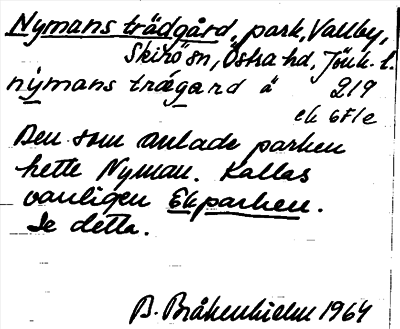 Nymans trädgård, park, Vallby,
Skirö sn, Östra hd, Jönk. l.
nymans trägard a 219
ek 6F1e
Den som anlade parken
hette Nyman. Kallas
vanligen Ekparken.
Se detta.
B. Bråkenhielm 1964